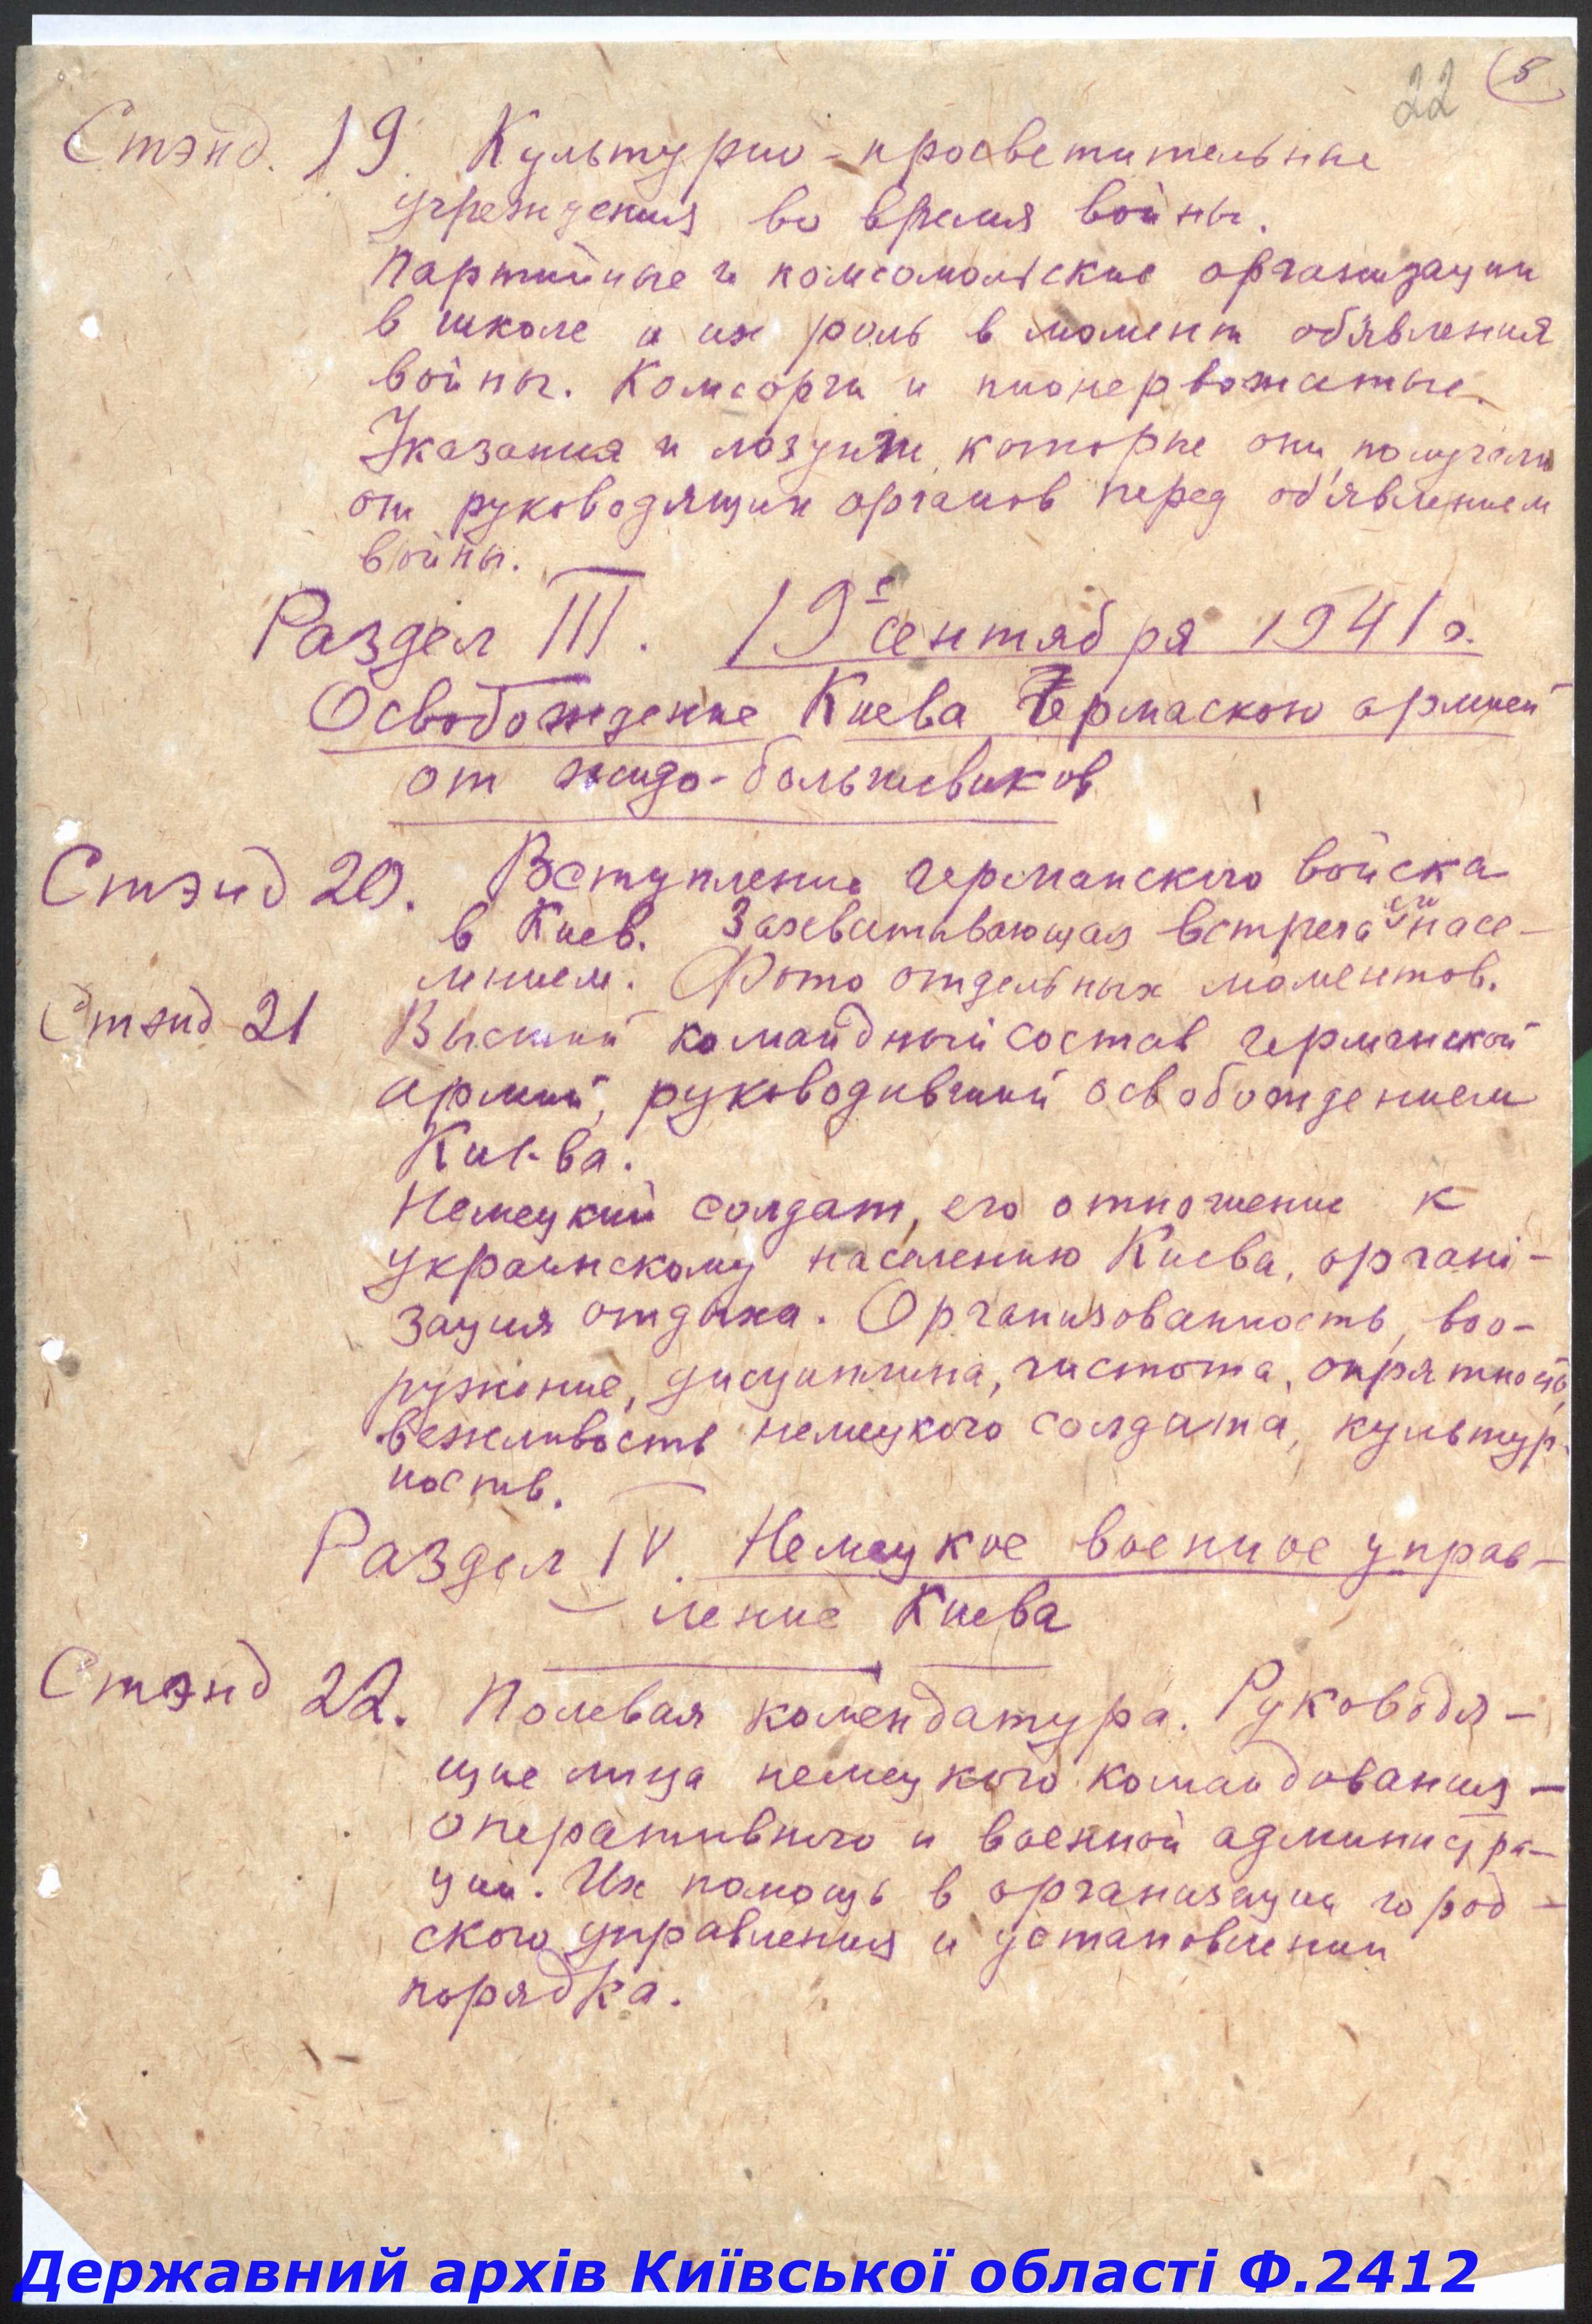 22 (5
Стэнд. 19. Культурно-просветительные
учреждения во время войны.
Партийные и комсомольские организации
в школе и их роль в момент об'явления
войны. Комсорги и пионервожатые.
Указания и лозунги, которые они получали
от руководящих органов перед об'явлением
войны.
Раздел III. 19го сентября 1941 г.
Освобождение Киева Гермаскою армией
от жидо-большевиков
Стэнд 20. Вступление германского войска
в Киев. Захватывающая встреча с насе-
лением. Фото отдельных моментов.
Стэнд 21 Высший командный состав германской
армии, руководивший освобождением
Киева.
Немецкий солдат, его отношение к
украинскому населению Киева, органі-
зация отдыха. Организованность, воо-
ружение, дисциплина, чистота, опрятность,
вежливость немецкого солдата, культур-
ность.
Раздел IV. Немецкое военное управ-
ление Киева
Стэнд 22. Полевая комендатура. Руководя-
щие лица немецкого командования -
оперативного и военной администра-
ции. Их помощь в организации город-
ского управления и установлении
порядка.
Державний архів Київської області Ф.2412